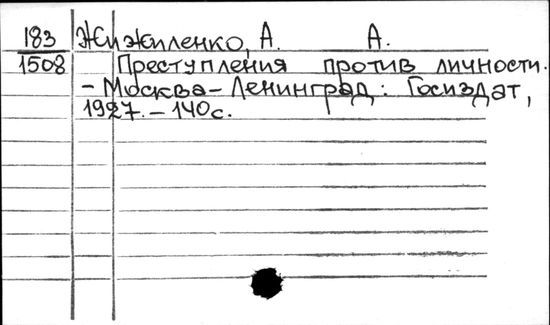 183 Жижиленко, А. А.
1508 Преступления против личности.
- Москва-Ленинград: Госиздат,
1927. - 140 с.